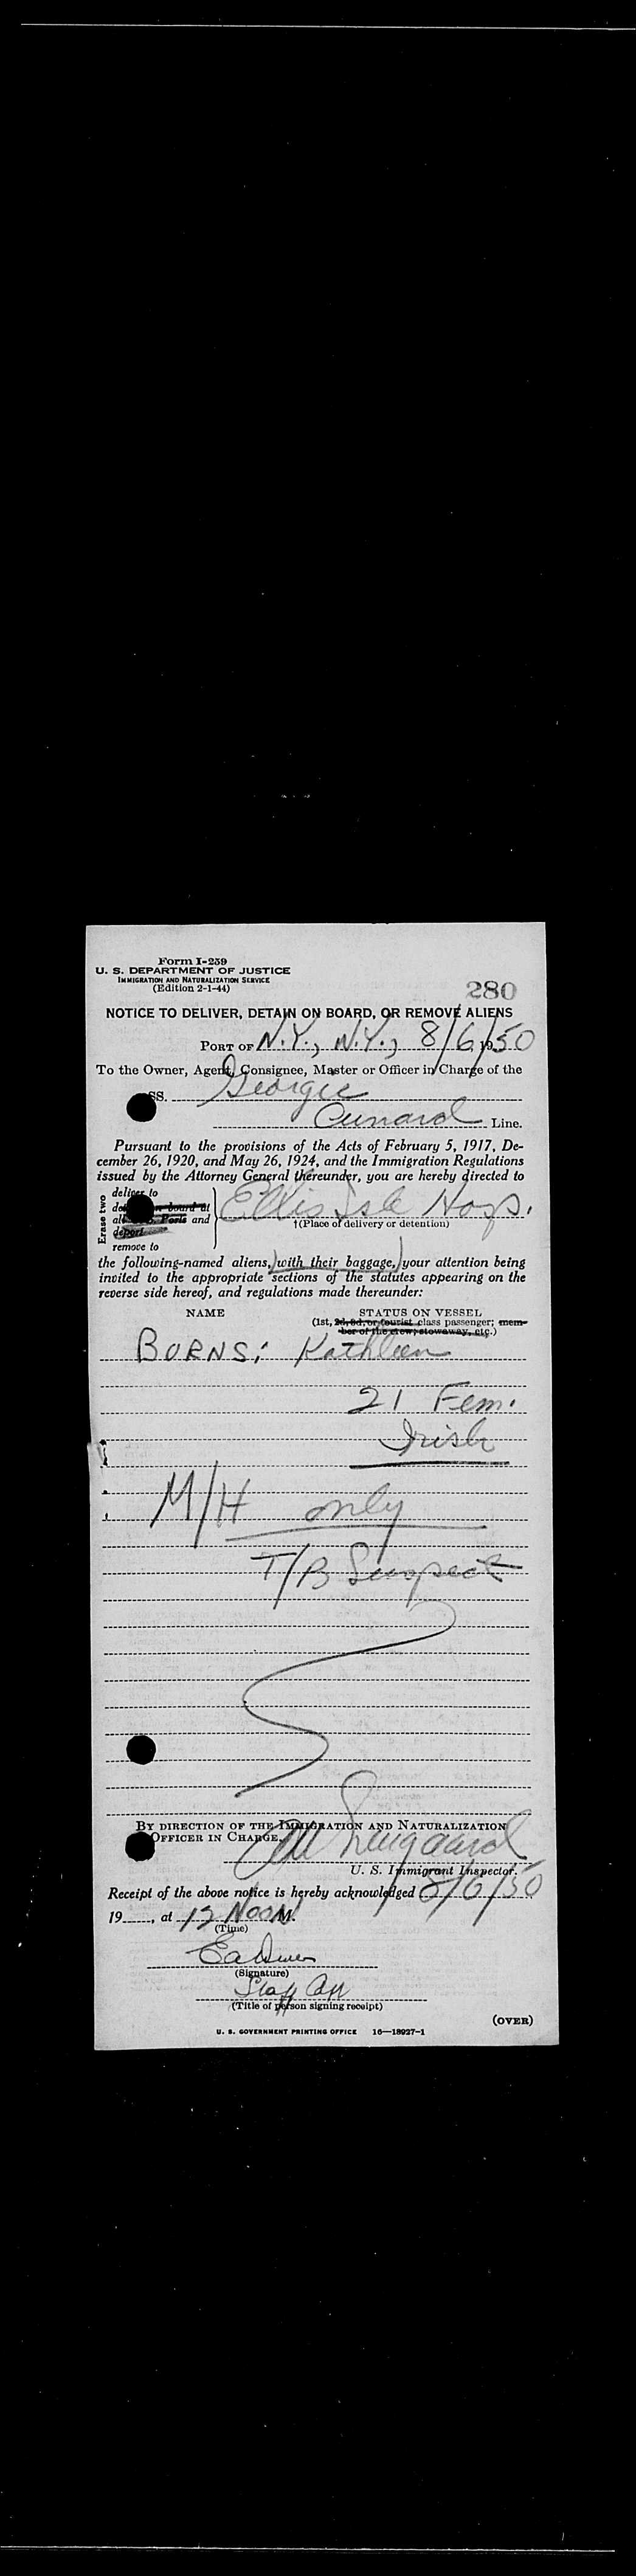 Form I-259
U. S. DEPARTMENT OF JUSTICE
IMMIGRATION AND NATURALIZATION SERVICE
(Edition 2-1-44)
280
NOTICE TO DELIVER, DETAIN ON BOARD, OR REMOVE ALIENS
PORT OF N.Y., N.Y., 8/6/1950
To the Owner, Agent, Consignee, Master or Officer in Charge of the
SS. Georgic
Cunard Line.
Pursuant to the provisions of the Acts of February 5, 1917, De-
cember 26, 1920, and May 26, 1924, and the Immigration Regulations
issued by the Attorney General thereunder, you are hereby directed to
Erase two
deliver to
on board at
Ports and
deport
remove to
Ellis Isle Hosp.
†(Place of delivery or detention)
the following-named aliens, (with their baggage,) your attention being
invited to the appropriate sections of the statutes appearing on the
reverse side hereof, and regulations made thereunder:
NAME STATUS ON VESSEL
(1st, 2d, 3d, or tourist class passenger; mem-
ber of the crew; stowaway, etc.)
BURNS: Kathleen
21 Fem.
Irish
M/H only
T/B Suspect
BY DIRECTION OF THE IMMIGRATION AND NATURALIZATION
OFFICER IN CHARGE,
U. S. Immigrant Inspector.
Receipt of the above notice is hereby acknowledged 8/6/50
19......, at 12 Noon M.
(Time)
(Signature)
(Title of person signing receipt)
(OVER)
U. S. GOVERNMENT PRINTING OFFICE 16—18927-1